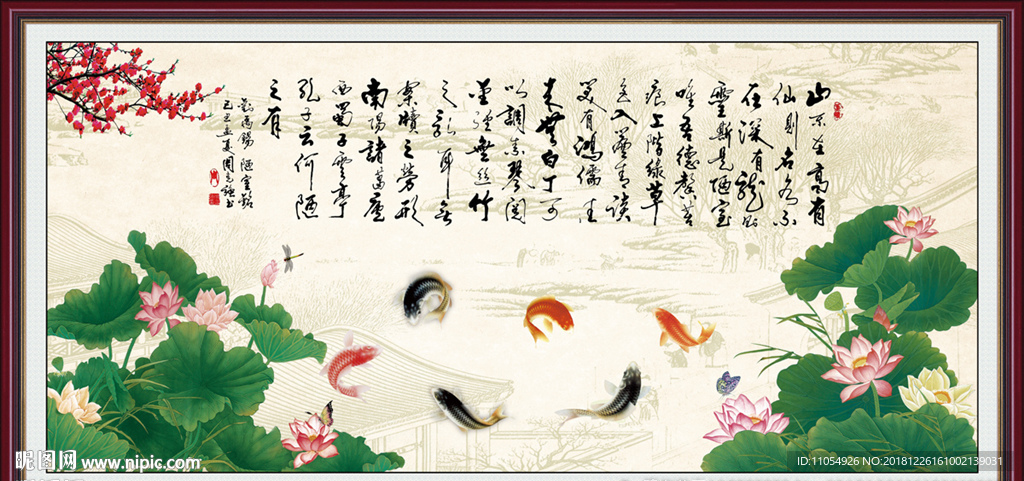 山不在高有
仙則名水不
在深有龍則
靈斯是陋室
唯吾德馨苔
痕上階緑草
色入簾青談
笑有鴻儒往
來無白丁可
以調素琴閱
金經無丝竹
之亂耳無
案牘之勞形
南陽諸葛廬
西蜀子雲亭
孔子云何陋
之有
劉禹錫 陋室銘
昵图网 www.nipic.com
ID:11054926 NO:20181226161002139031